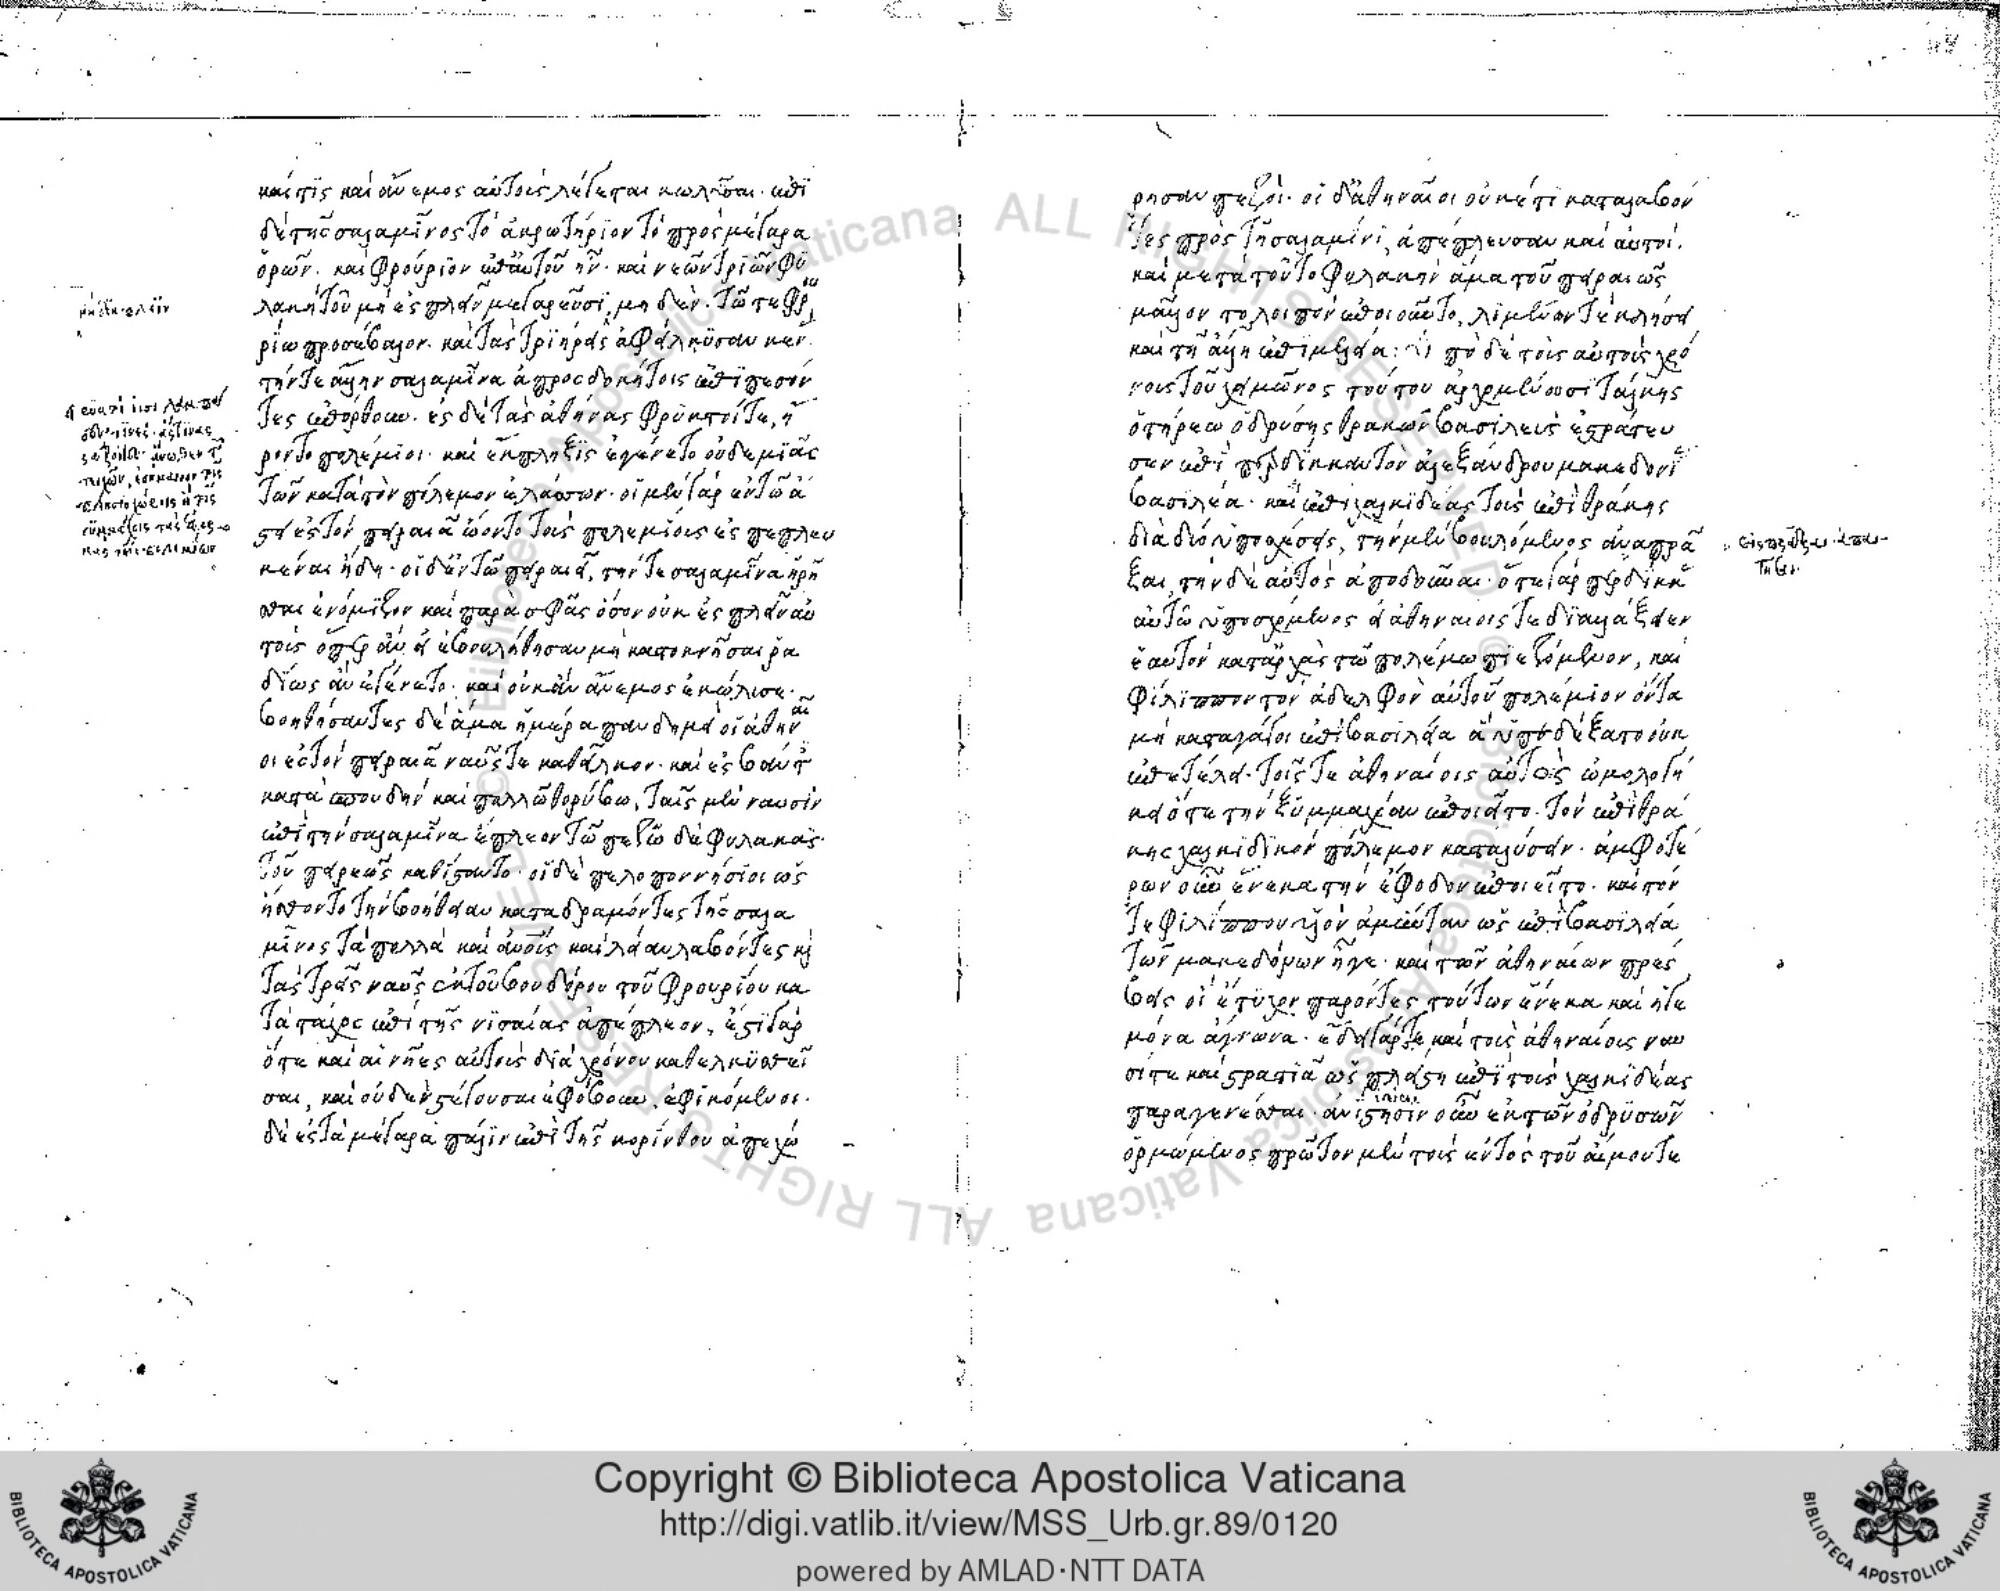 καί τις καὶ ἄνεμος αὐτοὺς λέγεται κωλῦσαι· ἐπὶ
δὲ τῆς σαλαμῖνος τὸ ἀκρωτήριον τὸ πρὸς μέγαρα
ὁρῶν· καὶ φρούριον ἐπ' αὐτοῦ ἦν· καὶ νεῶν τριῶν φυ
λακὴ τοῦ μὴ ἐσπλεῖν μεγαρεῦσι, μηδέν· τῶ τε φρου
ρίω προσέβαλον· καὶ τὰς τριήρεις ἀφείλκυσαν κεν
τήν τε ἄλλην σαλαμῖνα ἀπροσδοκήτοις ἐπιπεσόν
τες ἐπόρθουν· ἐς δὲ τὰς ἀθήνας φρυκτοί τε, ἤ
ροντο πολέμιοι· καὶ ἔκπληξις ἐγένετο οὐδεμιᾶς
τῶν κατὰ τὸν πόλεμον ἐλάσσων· οἱ μὲν γὰρ ἐν τῶ ἄ
στει ἐς τὸν πειραιᾶ ὤοντο τοὺς πολεμίους ἐσπεπλευ
κέναι ἤδη· οἱ δ' ἐν τῶ πειραιεῖ, τήν τε σαλαμῖνα ἡρῆ
σθαι ἐνόμιζον καὶ παρὰ σφᾶς ὅσον οὐκ ἐσπλεῖν αὐ
τούς ὅπερ ἂν εἰ ἐβουλήθησαν μὴ κατοκνῆσαι ῥα
δίως ἂν ἐγένετο· καὶ οὐκ ἂν ἄνεμος ἐκώλυσε·
βοηθήσαντες δὲ ἅμα ἡμέρα πανδημεὶ οἱ ἀθηναῖ
οι ἐς τὸν πειραιᾶ ναῦς τε καθεῖλκον· καὶ ἐσβάντες
κατὰ σπουδὴν καὶ πολλῶ θορύβω, ταῖς μὲν ναυσὶν
ἐπὶ τὴν σαλαμῖνα ἔπλεον τῶ πεζῶ δὲ φυλακὰς
τοῦ πειραιῶς καθίσταντο· οἱ δὲ πελοποννήσιοι ὡς
ἤσθοντο τὴν βοήθειαν καταδραμόντες τῆς σαλα
μῖνος τὰ πολλὰ καὶ ἀνθρώπους καὶ λείαν λαβόντες καὶ
τὰς τρεῖς ναῦς ἐκ τοῦ βουδόρου τοῦ φρουρίου κα
τὰ τάχος ἐπὶ τῆς νισαίας ἀπέπλεον, ἔστι γὰρ
ὅτε καὶ αἱ νῆες αὐτοὺς διὰ χρόνου καθελκυσθεῖ
σαι, καὶ οὐδὲν στέγουσαι ἐφόβουν, ἀφικόμενοι
δὲ ἐς τὰ μέγαρα πάλιν ἐπὶ τῆς κορίνθου ἀπεχώ
ρησαν πεζοί· οἱ δ' ἀθηναῖοι οὐκέτι καταλαβόν
τες πρὸς τῆ σαλαμῖνι, ἀπέπλευσαν καὶ αὐτοί.
καὶ μετὰ τοῦτο φυλακὴν ἅμα τοῦ πειραιῶς
μᾶλλον τὸ λοιπὸν ἐποιοῦντο, λιμένων τε κλήσει
καὶ τῆ ἄλλη ἐπιμελεία: ὑπὸ δὲ τοὺς αὐτοὺς χρό
νους τοῦ χειμῶνος τούτου ἀρχομένου σιτάλκης
ὁ τήρεω ὀδρύσης θρακῶν βασιλεὺς ἐστράτευ
σεν ἐπὶ περδίκκαν τὸν ἀλεξάνδρου μακεδονίας
βασιλέα· καὶ ἐπὶ χαλκιδέας τοὺς ἐπὶ θράκης
διὰ δύο ὑποσχέσεις, τὴν μὲν βουλόμενος ἀναπρᾶ
ξαι, τὴν δὲ αὐτὸς ἀποδοῦναι· ὅ τε γὰρ περδίκκας
αὐτῶ ὑποσχόμενος εἰ ἀθηναίοις τε διαλλάξειεν
ἑαυτὸν κατ' ἀρχὰς τῶ πολέμω πιεζόμενον, καὶ
φίλιππον τὸν ἀδελφὸν αὐτοῦ πολέμιον ὄντα
μὴ καταγάγοι ἐπὶ βασιλεία ἃ ὑπεδέξατο οὐκ
ἐπετέλει· τοῖς τε ἀθηναίοις αὐτὸς ὡμολογή
κει ὅτε τὴν ξυμμαχίαν ἐποιεῖτο· τὸν ἐπὶ θρά
κης χαλκιδικὸν πόλεμον καταλύσειν· ἀμφοτέ
ρων οὖν ἕνεκα τὴν ἔφοδον ἐποιεῖτο· καὶ τόν
τε φιλίππου υἱὸν ἀμύνταν ὡς ἐπὶ βασιλεία
τῶν μακεδόνων ἦγε· καὶ τῶν ἀθηναίων πρέσ
βεις οἳ ἔτυχον παρόντες τούτων ἕνεκα καὶ ἡγε
μόνα ἅγνωνα· ἔδει γάρ τε καὶ τοὺς ἀθηναίους ναυ
σί τε καὶ στρατιᾶ ὡς πλείστη ἐπὶ τοὺς χαλκιδέας
παραγενέσθαι· ἀνίστησιν οὖν ἐκ τῶν ὀδρυσῶν
ὁρμώμενος πρῶτον μὲν τοὺς ἐντὸς τοῦ αἵμου τε
Copyright © Biblioteca Apostolica Vaticana
http://digi.vatlib.it/view/MSS_Urb.gr.89/0120
powered by AMLAD·NTT DATA